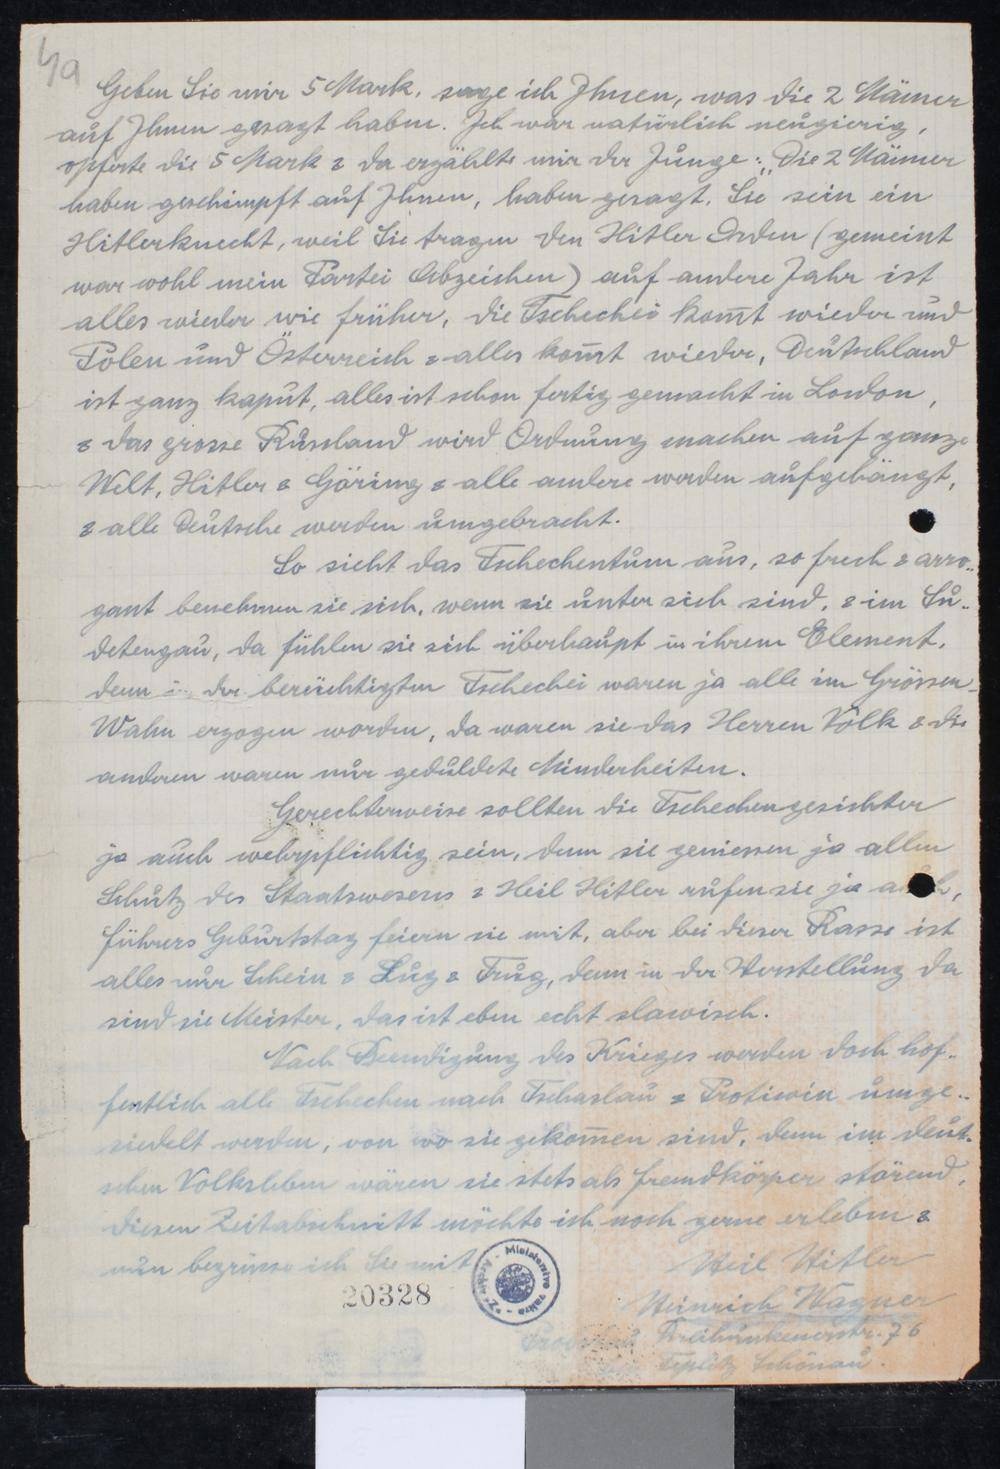 4a
Geben Sie mir 5 Mark, sage ich Ihnen, was die 2 Männer
auf Ihnen gesagt haben. Ich war natürlich neugierig,
opferte die 5 Mark & da erzählte mir der Junge: „Die 2 Männer
haben geschimpft auf Ihnen, haben gesagt, Sie sein ein
Hitlerknecht, weil Sie tragen den Hitler Orden (gemeint
war wohl mein Partei Abzeichen) auf andere Jahr ist
alles wieder wie früher, die Tschechei kom̄t wieder und
Polen und Österreich & alles kom̄t wieder, Deutschland
ist ganz kaput, alles ist schon fertig gemacht in London,
& das grosse Russland wird Ordnung machen auf ganze
Welt, Hitler & Göring & alle andere werden aufgehängt,
& alle Deutsche werden umgebracht.
So sieht das Tschechentum aus, so frech & arro-
gant benehmen sie sich, wenn sie unter sich sind, & im Su-
detengau, da fühlen sie sich überhaupt in ihrem Element,
denn in der berüchtigten Tschechei waren ja alle im Grössen-
Wahn erzogen worden, da waren sie das Herren Volk & die
anderen waren nur geduldete Minderheiten.
Gerechterweise sollten die Tschechengesichter
ja auch wehrpflichtig sein, denn sie geniessen ja allen
Schutz des Staatswesens & Heil Hitler rufen sie ja auch,
Führers Geburtstag feiern sie mit, aber bei dieser Rasse ist
alles nur Schein & Lug & Trug, denn in der Verstellung da
sind sie Meister, das ist eben echt slawisch.
Nach Beendigung des Krieges werden doch hof-
fentlich alle Tschechen nach Tschaslau & Protiwin umge-
siedelt werden, von wo sie gekom̄en sind, denn im deut-
schen Volksleben wären sie stets als Fremdkörper störend,
diesen Zeitabschnitt möchte ich noch gerne erleben &
nun begrüsse ich Sie mit
Heil Hitler
Heinrich Wagner
76
Teplitz Schönau.
20328
Ministerstvo vnitra - Archiv "Z"